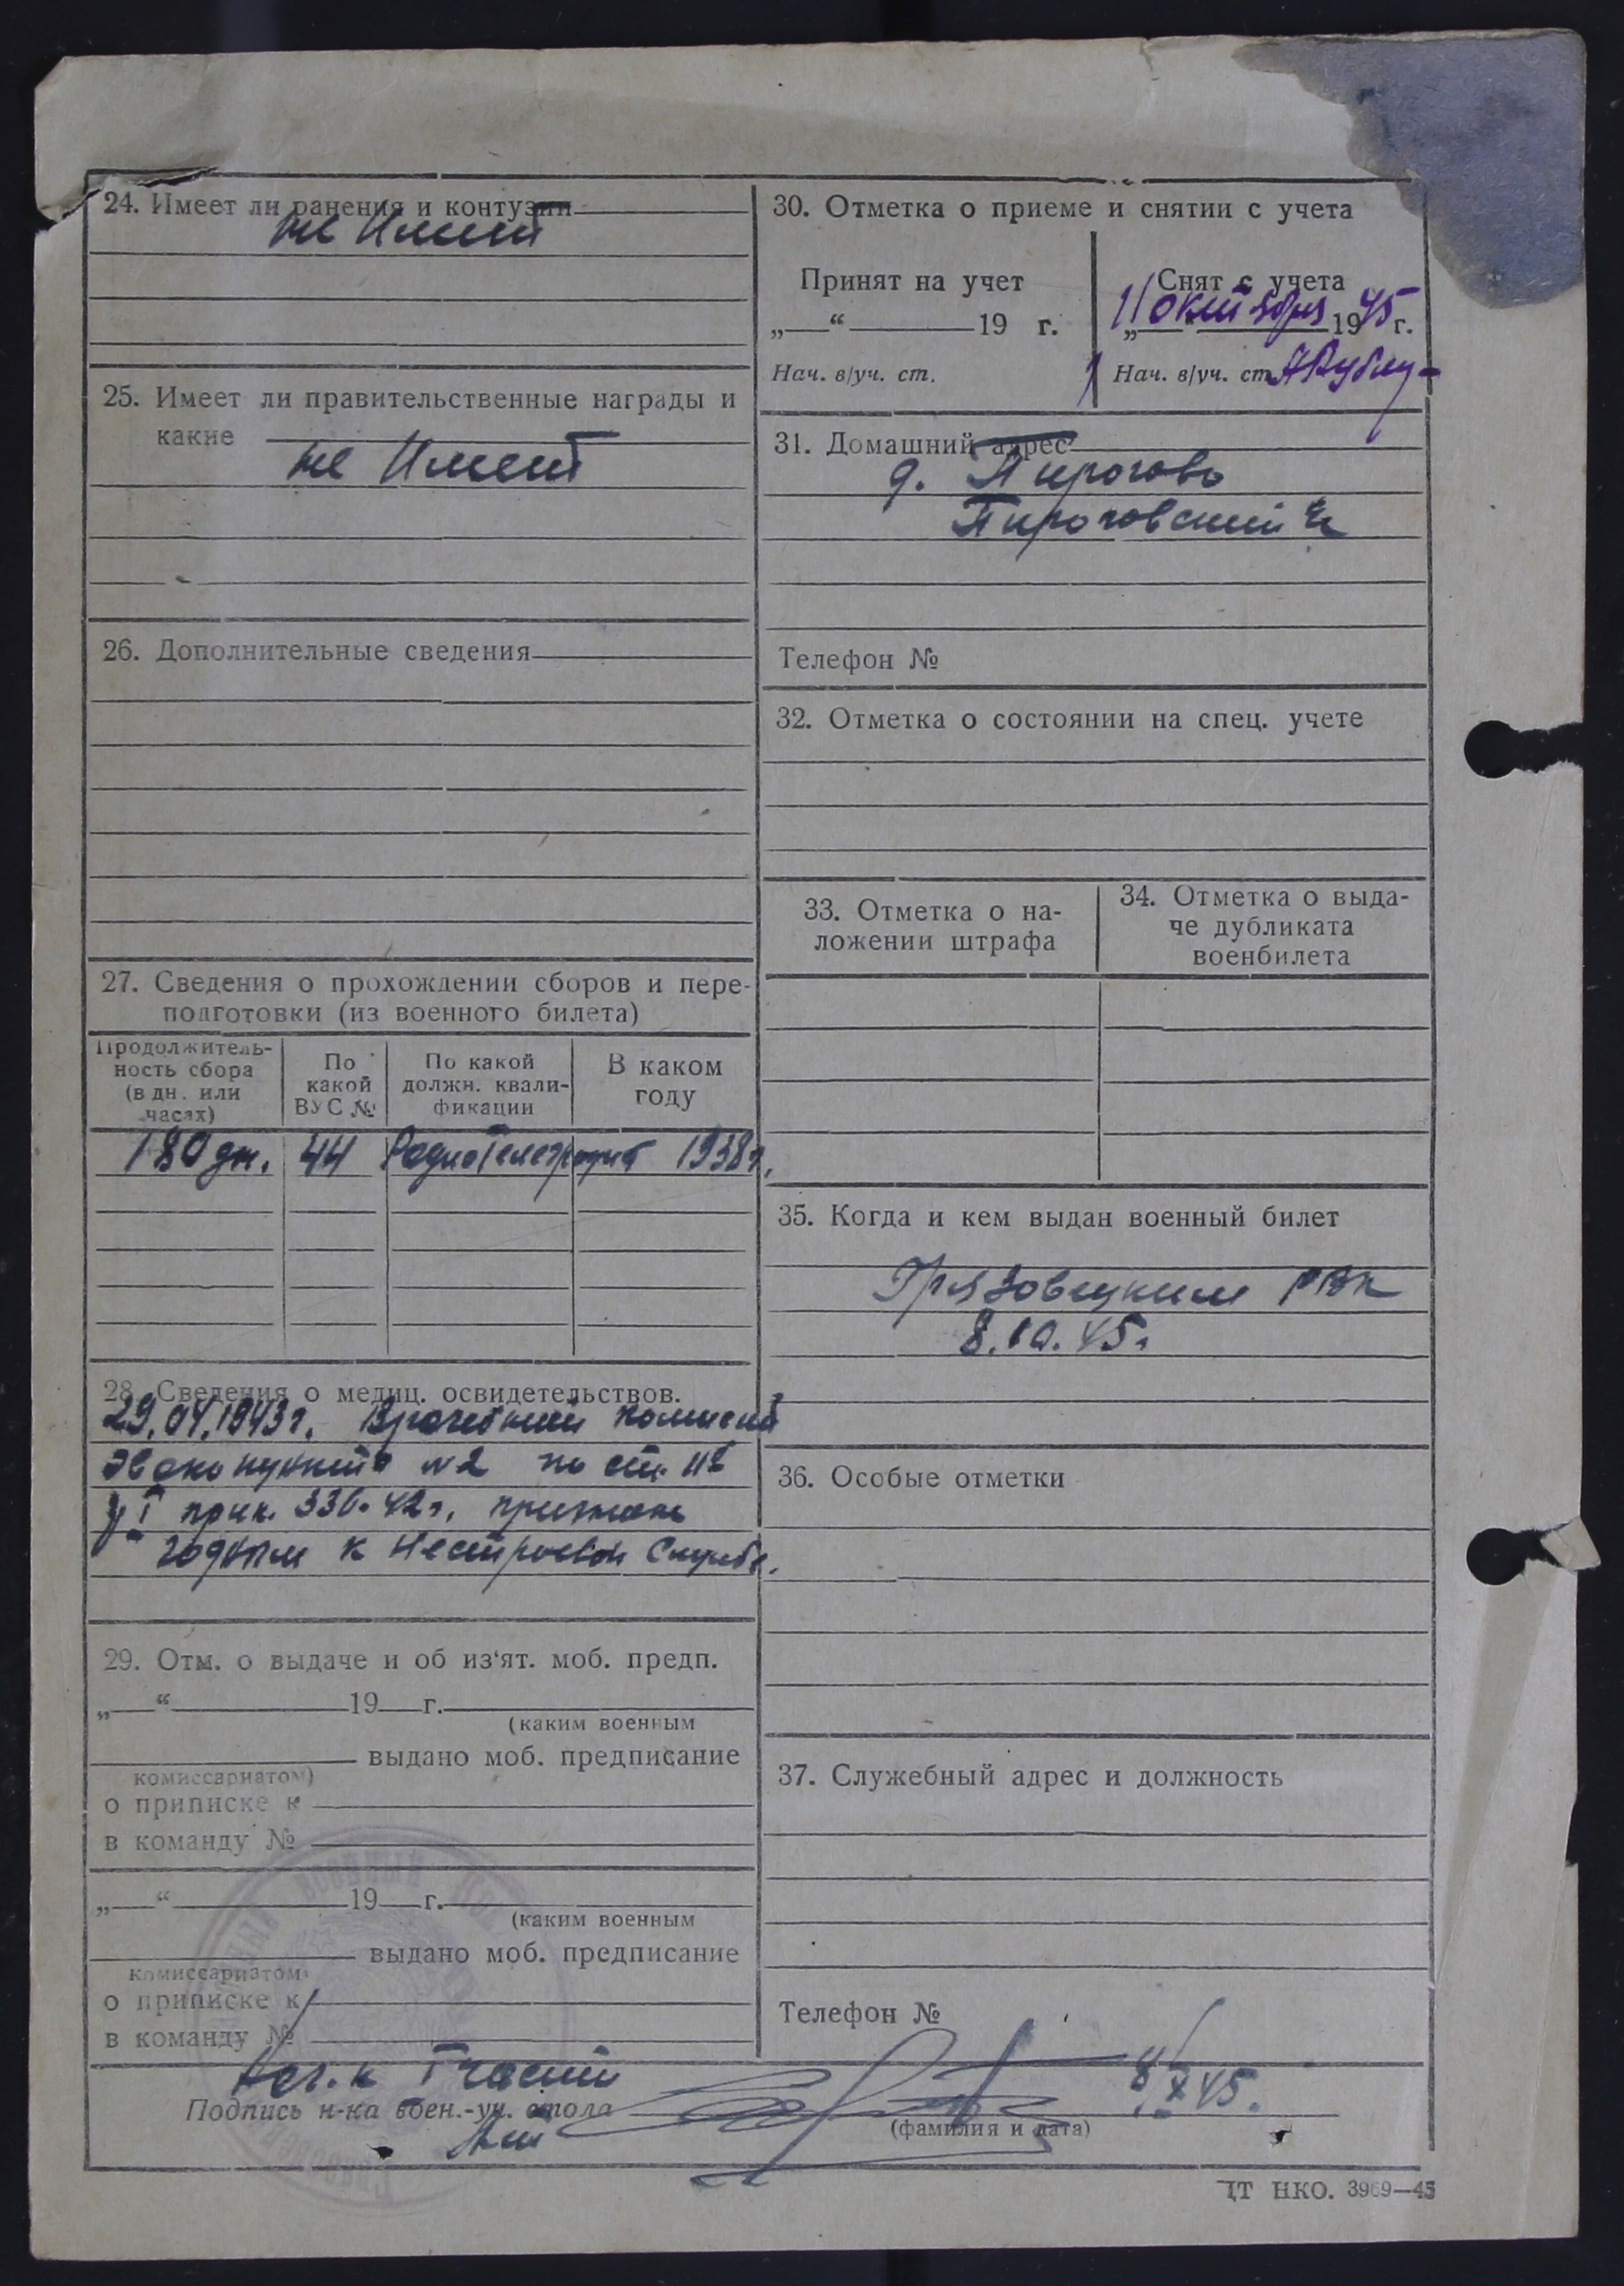 24. Имеет ли ранения и контузии
не Имеет
25. Имеет ли правительственные награды и
какие
не Имеет
26. Дополнительные сведения
27. Сведения о прохождении сборов и пере-
подготовки (из военного билета)
Продолжитель-
ность сбора
(в дн. или
часах)
По
какой
ВУС №
По какой
должн. квали-
фикации
В каком
году
180 дн. 44 Радиотелеграфист 1938 г.
28. Сведения о медиц. освидетельствов.
29.04.1943 г. Врачебной комиссией
Эвакопункта № 2 по ст. 11б
гр I прик. 336-42 г. признан
годным к Нестроевой Службе.
29. Отм. о выдаче и об из'ят. моб. предп.
„ “ 19 г.
(каким военным
выдано моб. предписание
комиссариатом)
о приписке к
в команду №
„ “ 19 г.
(каким военным
выдано моб. предписание
комиссариатом)
о приписке к
в команду №
30. Отметка о приеме и снятии с учета
Принят на учет
„ “ 19 г.
Нач. в/уч. ст.
Снят с учета
„11“ октября 1945 г.
Нач. в/уч. ст.
31. Домашний адрес
д. Пирогово
Пироговский
Телефон №
32. Отметка о состоянии на спец. учете
33. Отметка о на-
ложении штрафа
34. Отметка о выда-
че дубликата
военбилета
35. Когда и кем выдан военный билет
Грязовецким РВК
8.10.45 г.
36. Особые отметки
37. Служебный адрес и должность
Телефон №
Нач-к I части
Подпись н-ка воен.-уч. стола
8/X 45.
(фамилия и дата)
ЦТ НКО. 3969—45